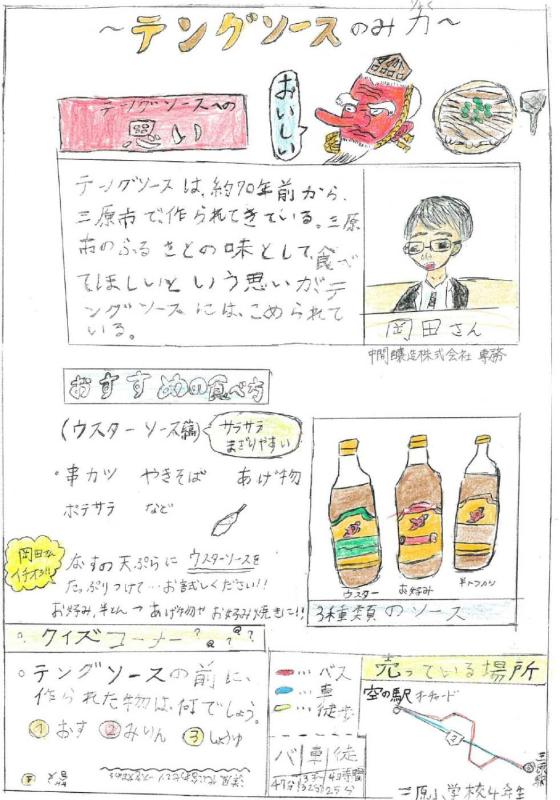 ～テングソースのみ力～
テングソースへの
思い
おいしい
テングソースは、約70年前から、
三原市で、作られてきている。三原
市のふるさとの味として、食べ
てほしいという思いがテ
ングソースには、こめられて
いる。
岡田さん
中間醸造株式会社 専務
おすすめの食べ方
(ウスターソース編)
サラサラ
まざりやすい
・串カツ やきそば あげ物
ポテサラ など
岡田さん
イチオシ!!
なすの天ぷらに ウスターソースを
たっぷりつけて…お試しください!!
お好み,半とん→あげ物や お好み焼きに!!
ウスター
お好み
半トンカツ
3種類のソース
クイズコーナー????
テングソースの前に、
作られた物は、何でしょう。
①おす ②みりん ③しょうゆ
…バス
…車
…徒歩
バ 車 徒
47分
売っている場所
空の駅オーチャード
三原駅
三原小学校4年生